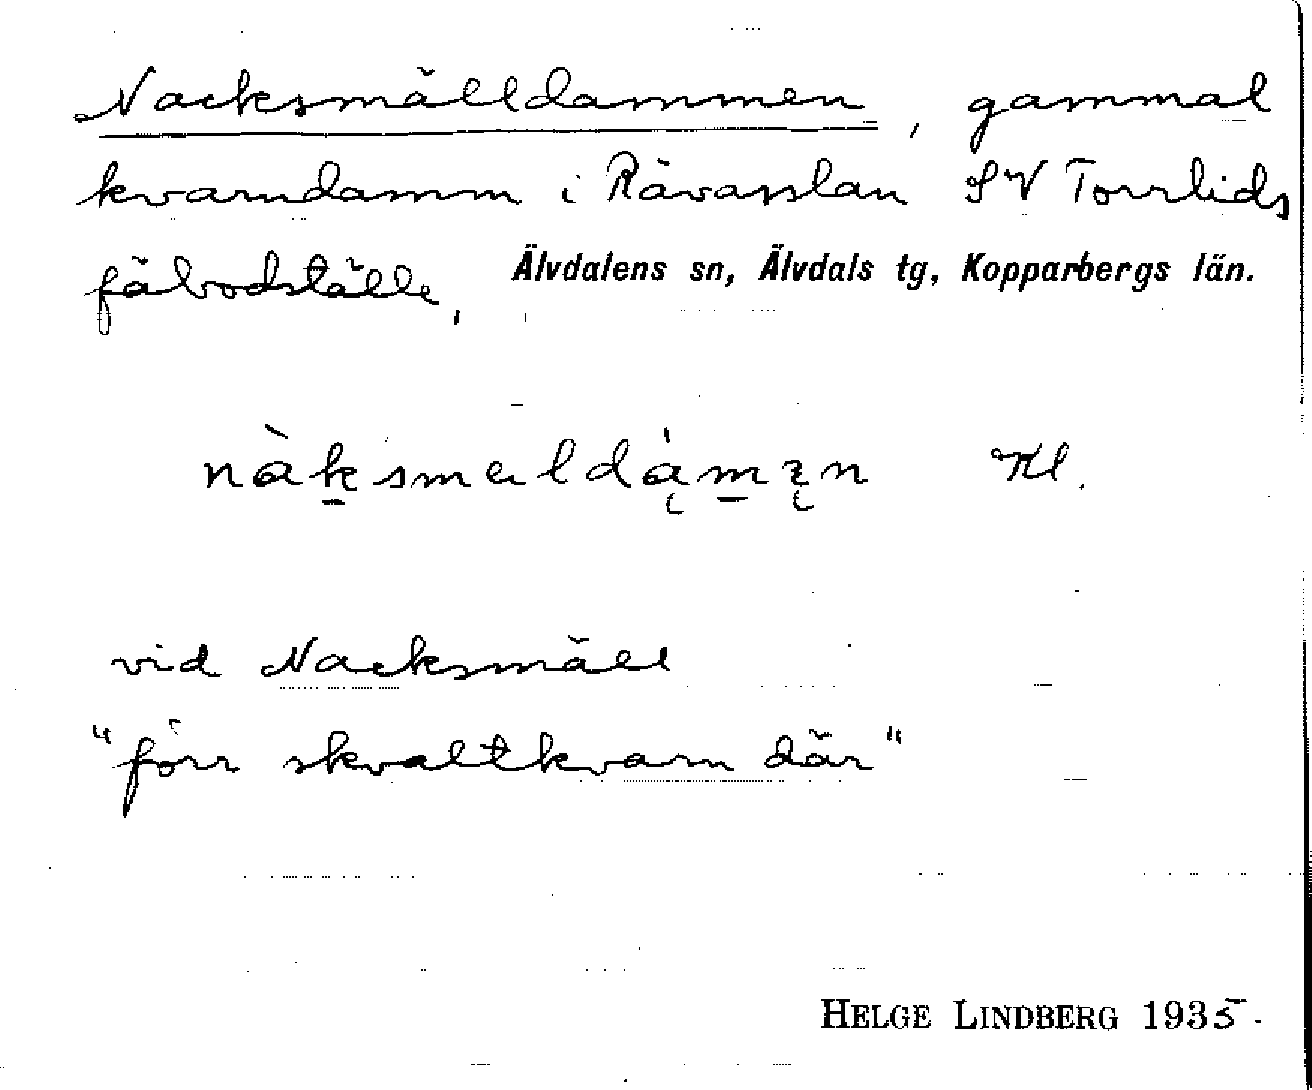 Nacksmälldammen, gammal
kvarndamm i Rävasslan SV Torrlids
fäbodställe, Älvdalens sn, Älvdals tg, Kopparbergs län.
vid Nacksmäll
"förr skvaltkvarn där"
HELGE LINDBERG 1935.